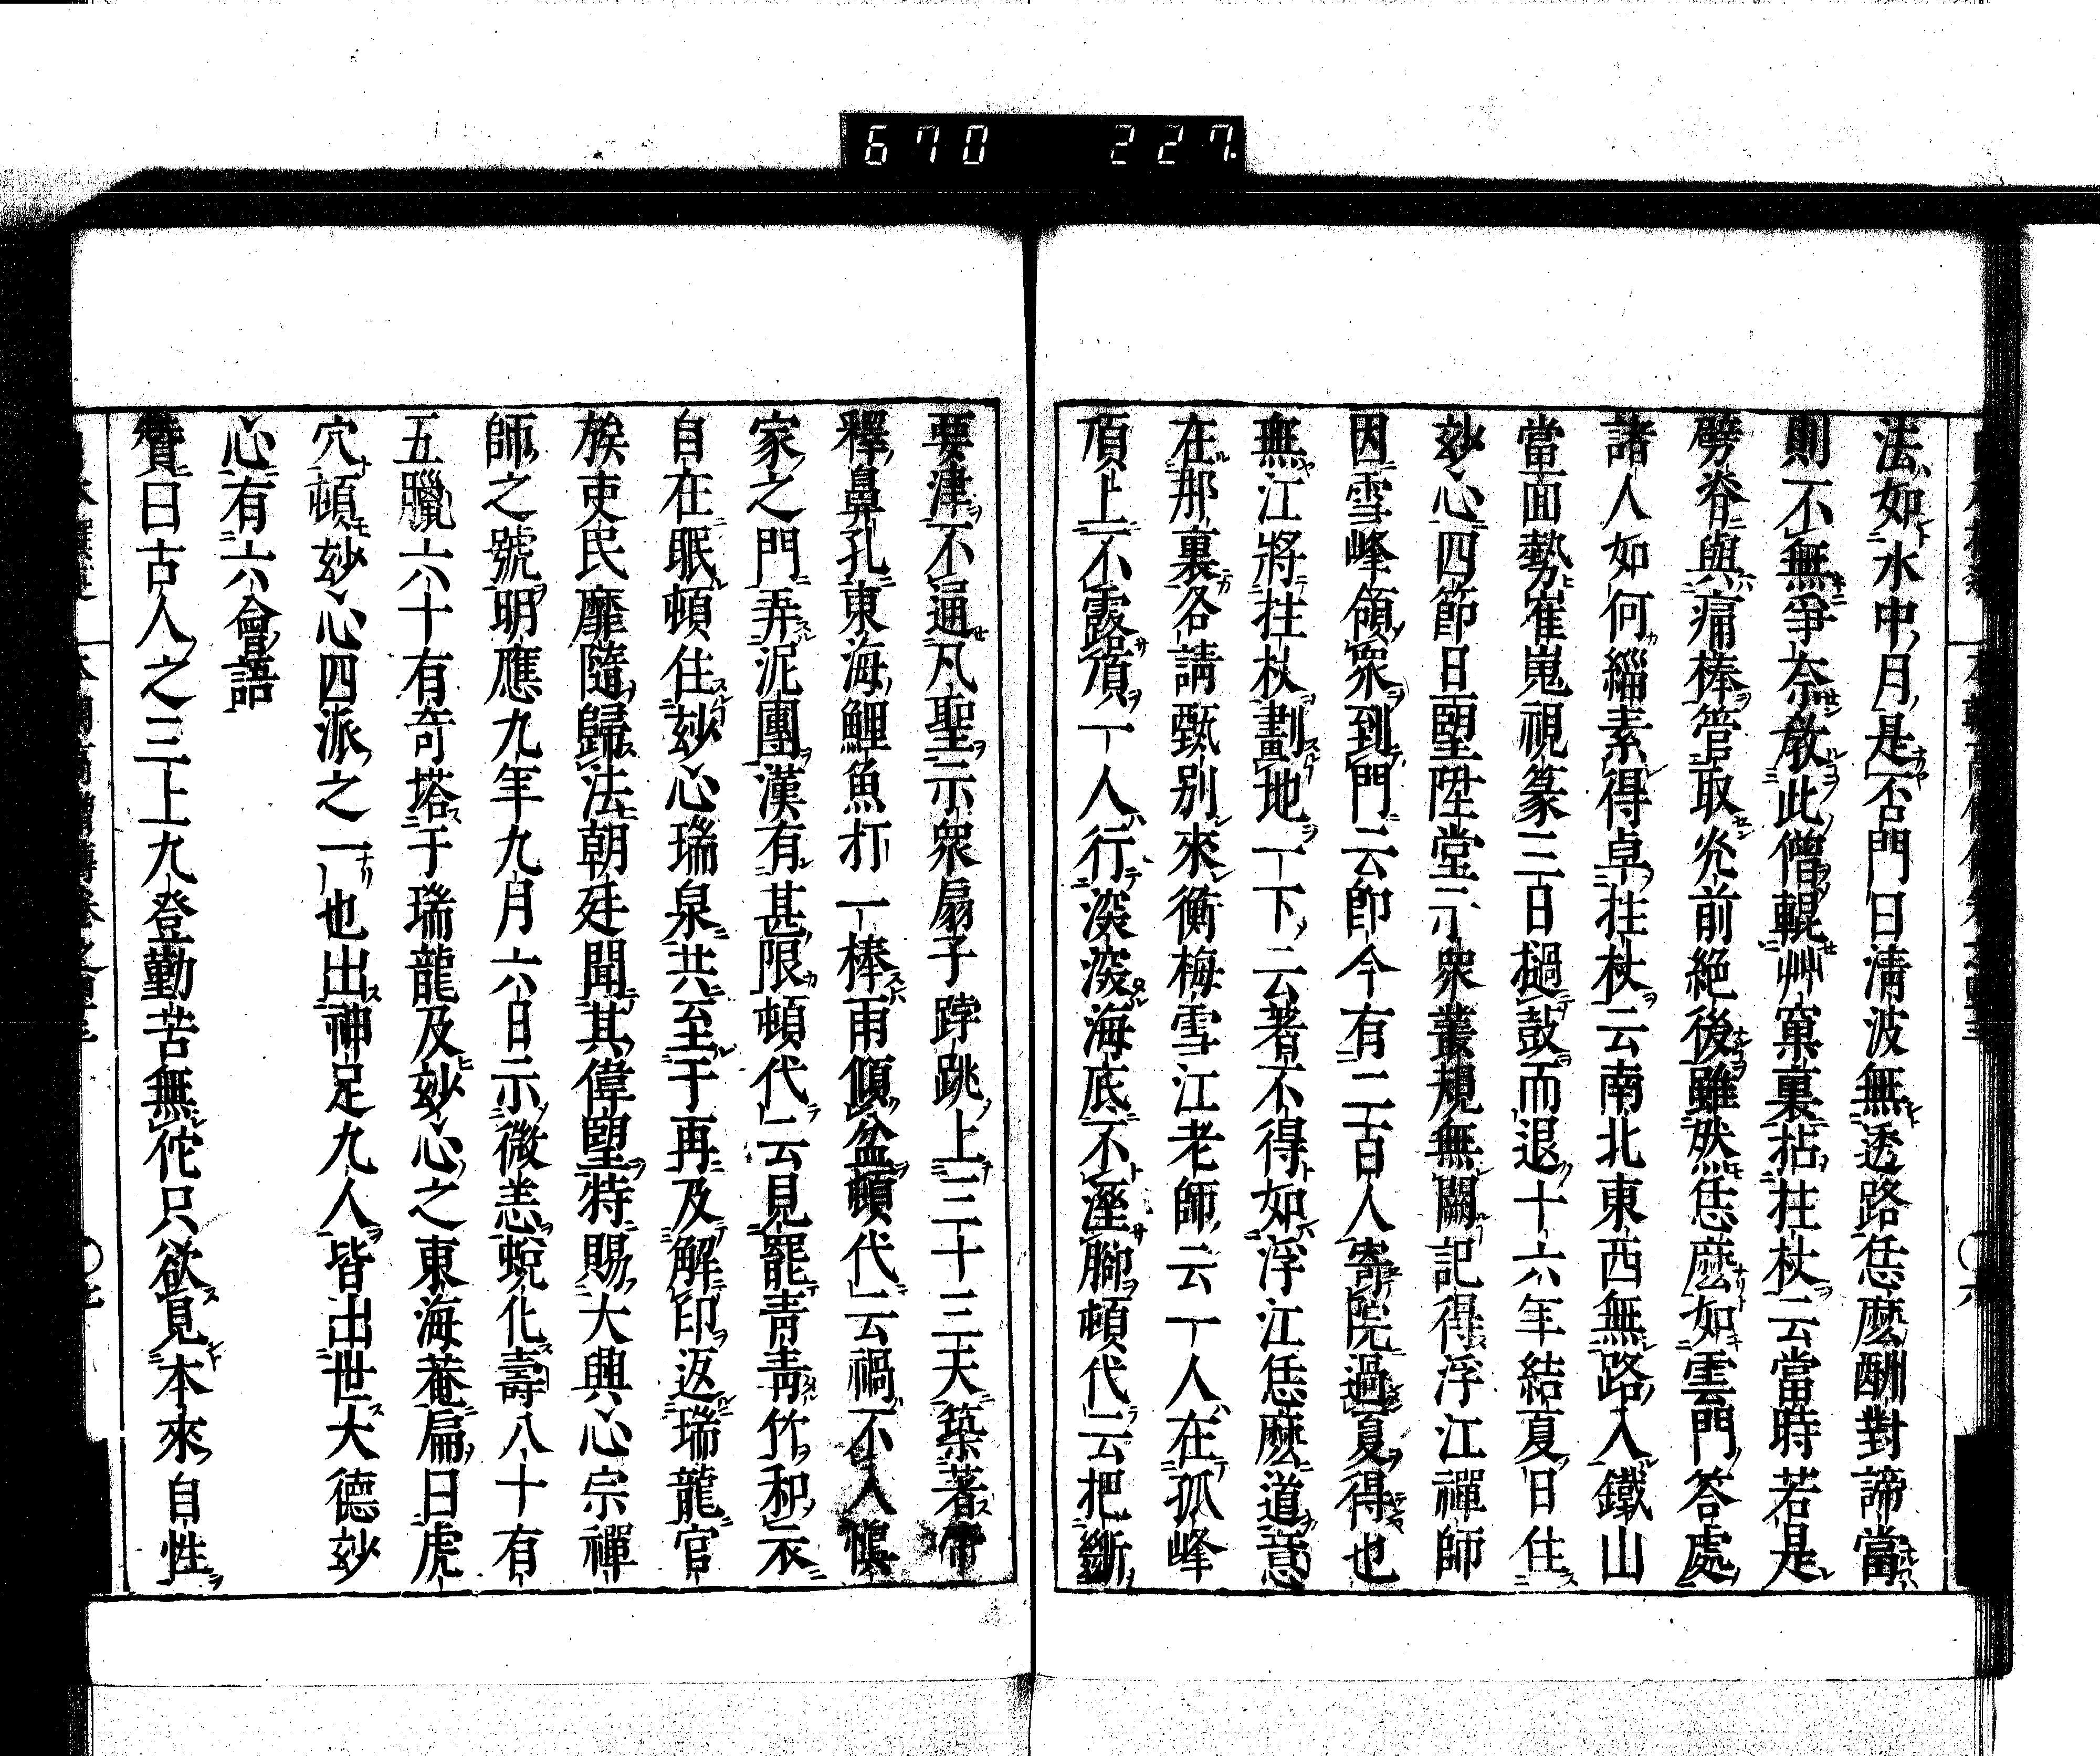 670 227
法如水中月是否門曰清波無透路恁麼酬對諦當
則不無爭奈敎此僧輥艸窠裏拈拄杖云當時若是
劈脊與痛棒管取光前絕後雖然恁麼如雲門答處
諸人如何緇素得卓拄杖云南北東西無路入鐵山
當面勢崔嵬視篆三日撾鼓而退十六年結夏日住
玅心四節日堅陞堂示衆叢規無闕記得浮江禪師
因雪峰領衆到門云卽今有二百人寄院過夏得也
無江將拄杖劃地一下云著不得如浮江恁麼道意
在那裏各請甄別來衡梅雪江老師云一人在孤峰
頂上不露頂一人行深深海底不溼腳頓代云把斷
要津不通凡聖示衆扇子𨁝跳上三十三天築著帝
釋鼻孔東海鯉魚打一棒雨傾盆頓代云禍不入愼
家之門弄泥團漢有甚限頓代云見罷靑靑竹和衣
自在眠頓住玅心瑞泉共至于再及解印返瑞龍官
族吏民靡隨歸法朝廷聞其偉望特賜大興心宗禪
師之號明應九年九月六日示微恙蛻化壽八十有
五臘六十有奇塔于瑞龍及玅心之東海菴扁曰虎
穴頓玅心四派之一也出神足九人皆出世大德玅
心有六會語
贊曰古人之三上九登勤苦無佗只欲見本來自性